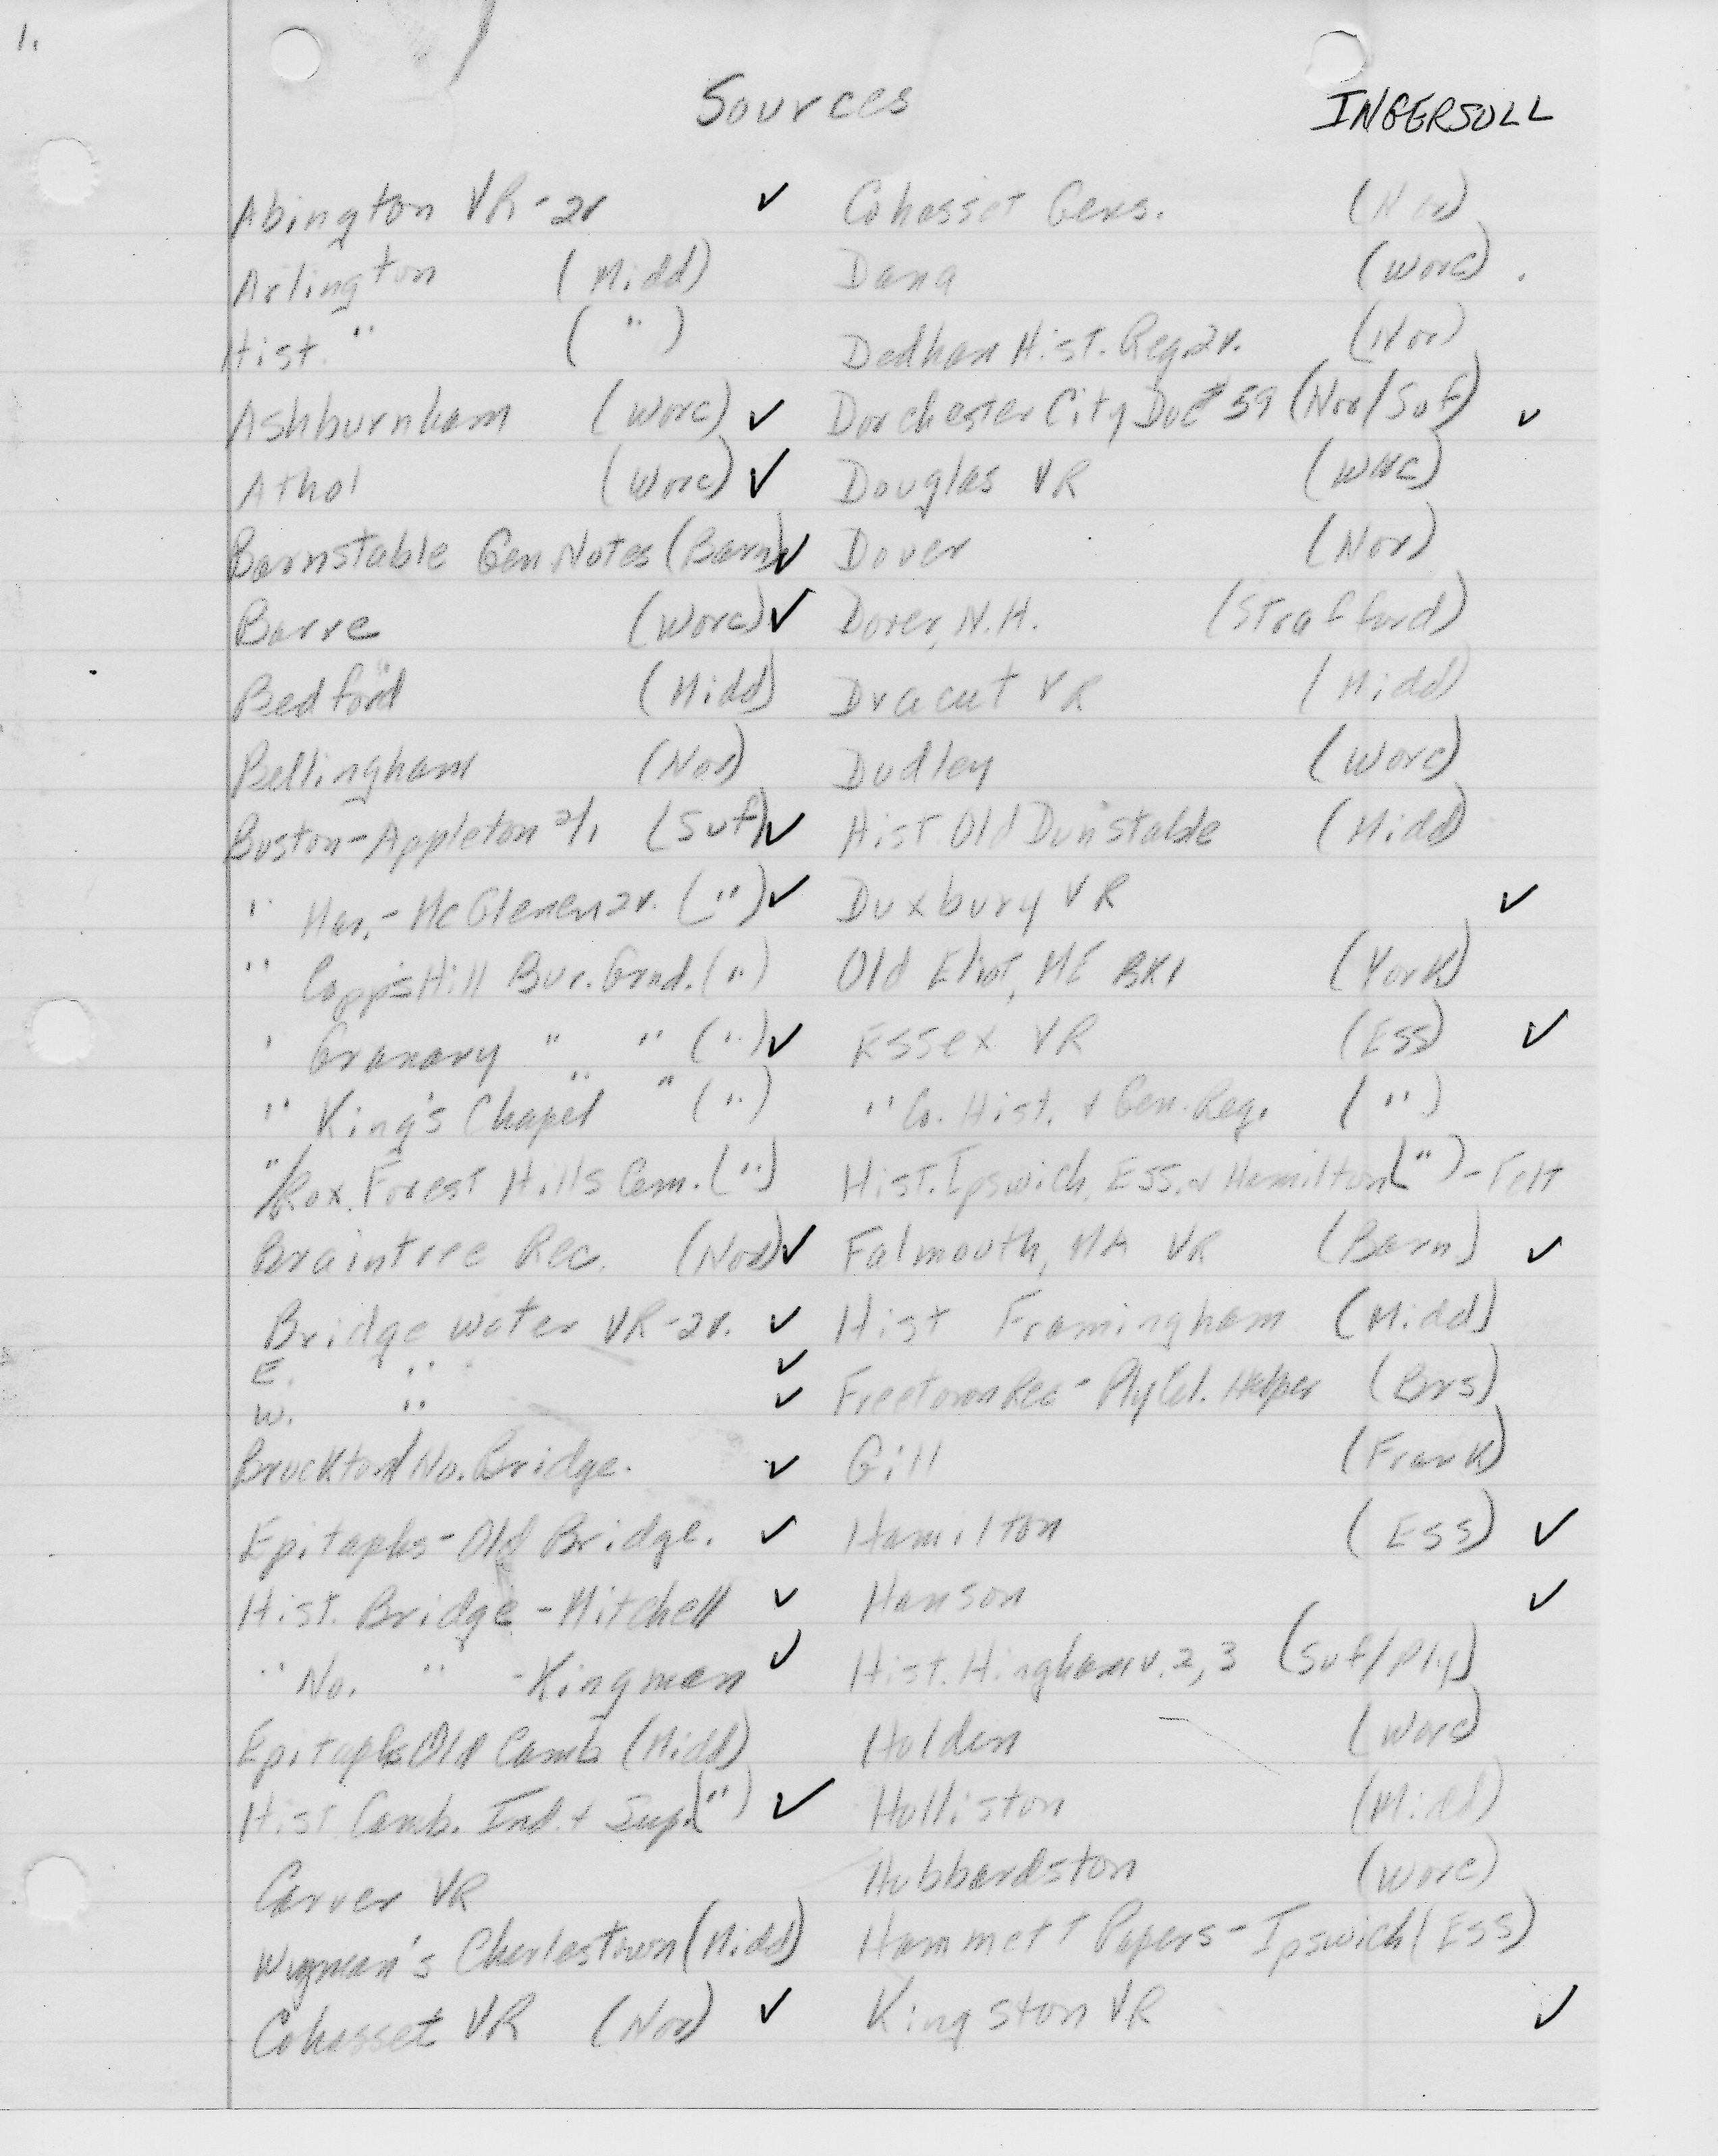 1.
Sources
INGERSOLL
Abington VR-2v ✓
Arlington (Midd)
Hist. " (")
Ashburnham (Worc) ✓
Athol (Worc) ✓
Barnstable Gen. Notes (Barn) ✓
Barre (Worc) ✓
Bedford (Midd)
Bellingham (Nor)
Boston-Appleton (Suf) ✓
" Mar.-McGlenen 2v. (") ✓
" Copp's Hill Bur. Grnd. (")
" Granary " " (") ✓
" King's Chapel " " (")
"/Rox. Forest Hills Cem. (")
Braintree Rec. (Nor) ✓
Bridgewater VR-2v. ✓
E. " ✓
W. " ✓
Brockton/No. Bridge. ✓
Epitaphs-Old Bridge. ✓
Hist. Bridge-Mitchell ✓
" No. " -Kingman ✓
Epitaphs Old Camb (Midd)
Hist. Camb. Ind. + Sup. (") ✓
Carver VR
Wyman's Charlestown (Midd)
Cohasset VR (Nor) ✓
Cohasset Gens. (Nor)
Dana (Worc).
Dedham Hist. Reg 2v. (Nor)
Dorchester City Doc # 59 (Nor/Suf) ✓
Douglas VR (Worc)
Dover (Nor)
Dover, N.H. (Strafford)
Dracut VR (Midd)
Dudley (Worc)
Hist. Old Dunstable (Midd)
Duxbury VR ✓
Old Eliot, ME BK1 (York)
Essex VR (Ess) ✓
" Co. Hist. + Gen. Reg. (")
Hist. Ipswich, Ess. + Hamilton (") - Felt
Falmouth, MA VR (Barn) ✓
Hist Framingham (Midd)
Freetown Rec - Ply Col. Helper (Brs)
Gill (Frank)
Hamilton (Ess) ✓
Hanson ✓
Hist. Hingham v. 2, 3 (Suf/Ply)
Holden (Worc)
Holliston (Midd)
Hubbardston (Worc)
Hammett Papers - Ipswich (Ess)
Kingston VR ✓